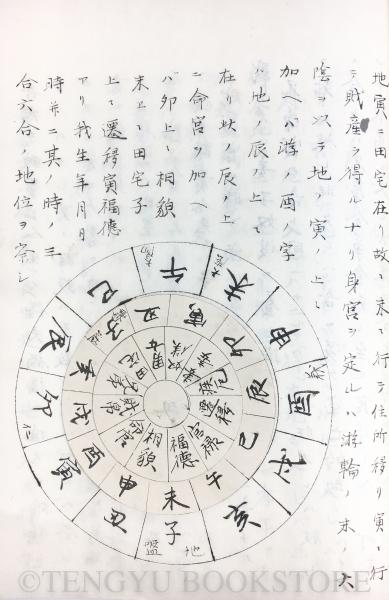 地寅ニ田宅在リ故ニ末ニ行テ住所移リ寅ニ行
テ財産ヲ得ルナリ身宮ヲ定ルハ游輪ノ末ノ
陰ヲ以テ地ノ寅上ニ
加ヘハ游ノ酉ノ字
ハ地ノ辰ノ上ニ
在リ此ノ辰ノ上
ニ命宮ヲ加ヘ
バ卯上ニ相貌
末上ニ田宅子
上ニ遷移寅福德
アリ我生年月日
時并ニ其時ノ三
合六合ノ地位ヲ察シ
六
午
未
申
酉
戌
亥
子
丑
寅
卯
辰
巳
地
盤
丑
寅
卯
辰
巳
午
未
申
酉
戌
亥
子
命宮
相貌
福德
官禄
遷移
疾
妻妾
奴僕
男女
田宅
兄弟
財帛
©TENGYU BOOKSTORE